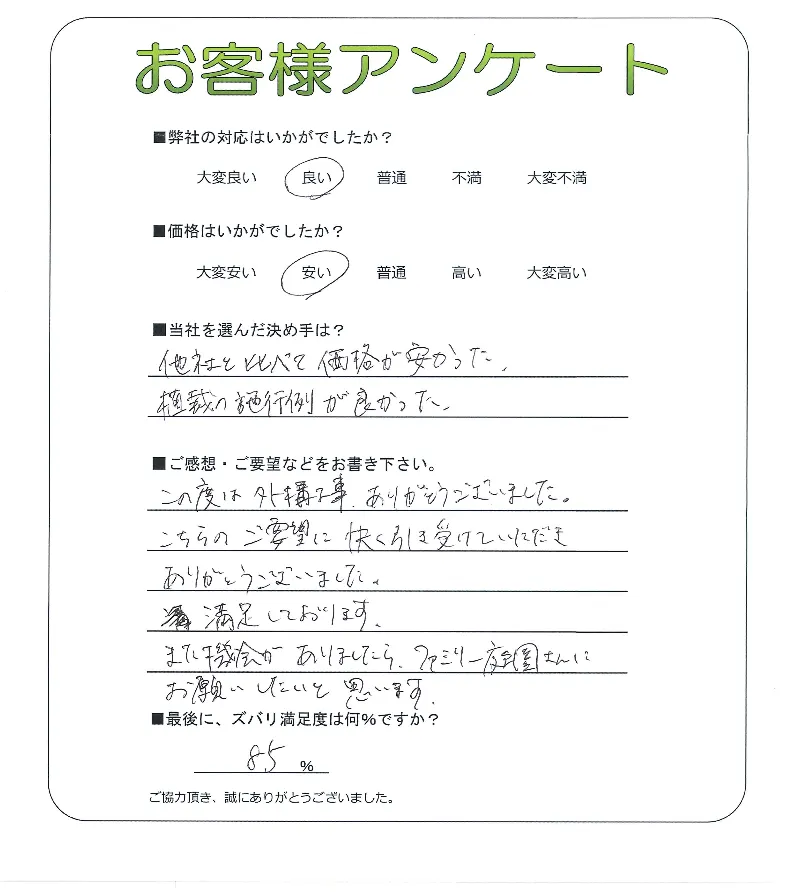 お客様アンケート
■弊社の対応はいかがでしたか？
大変良い　良い　普通　不満　大変不満
■価格はいかがでしたか？
大変安い　安い　普通　高い　大変高い
■当社を選んだ決め手は？
他社と比べて価格が安かった。
植裁の施行例が良かった。
■ご感想・ご要望などをお書き下さい。
この度は外構工事、ありがとうございました。
こちらのご要望に快く引き受けていただき
ありがとうございました。
満足しております。
また機会がありましたら、ファミリー庭園さんに
お願いしたいと思います。
■最後に、ズバリ満足度は何％ですか？
85 %
ご協力頂き、誠にありがとうございました。